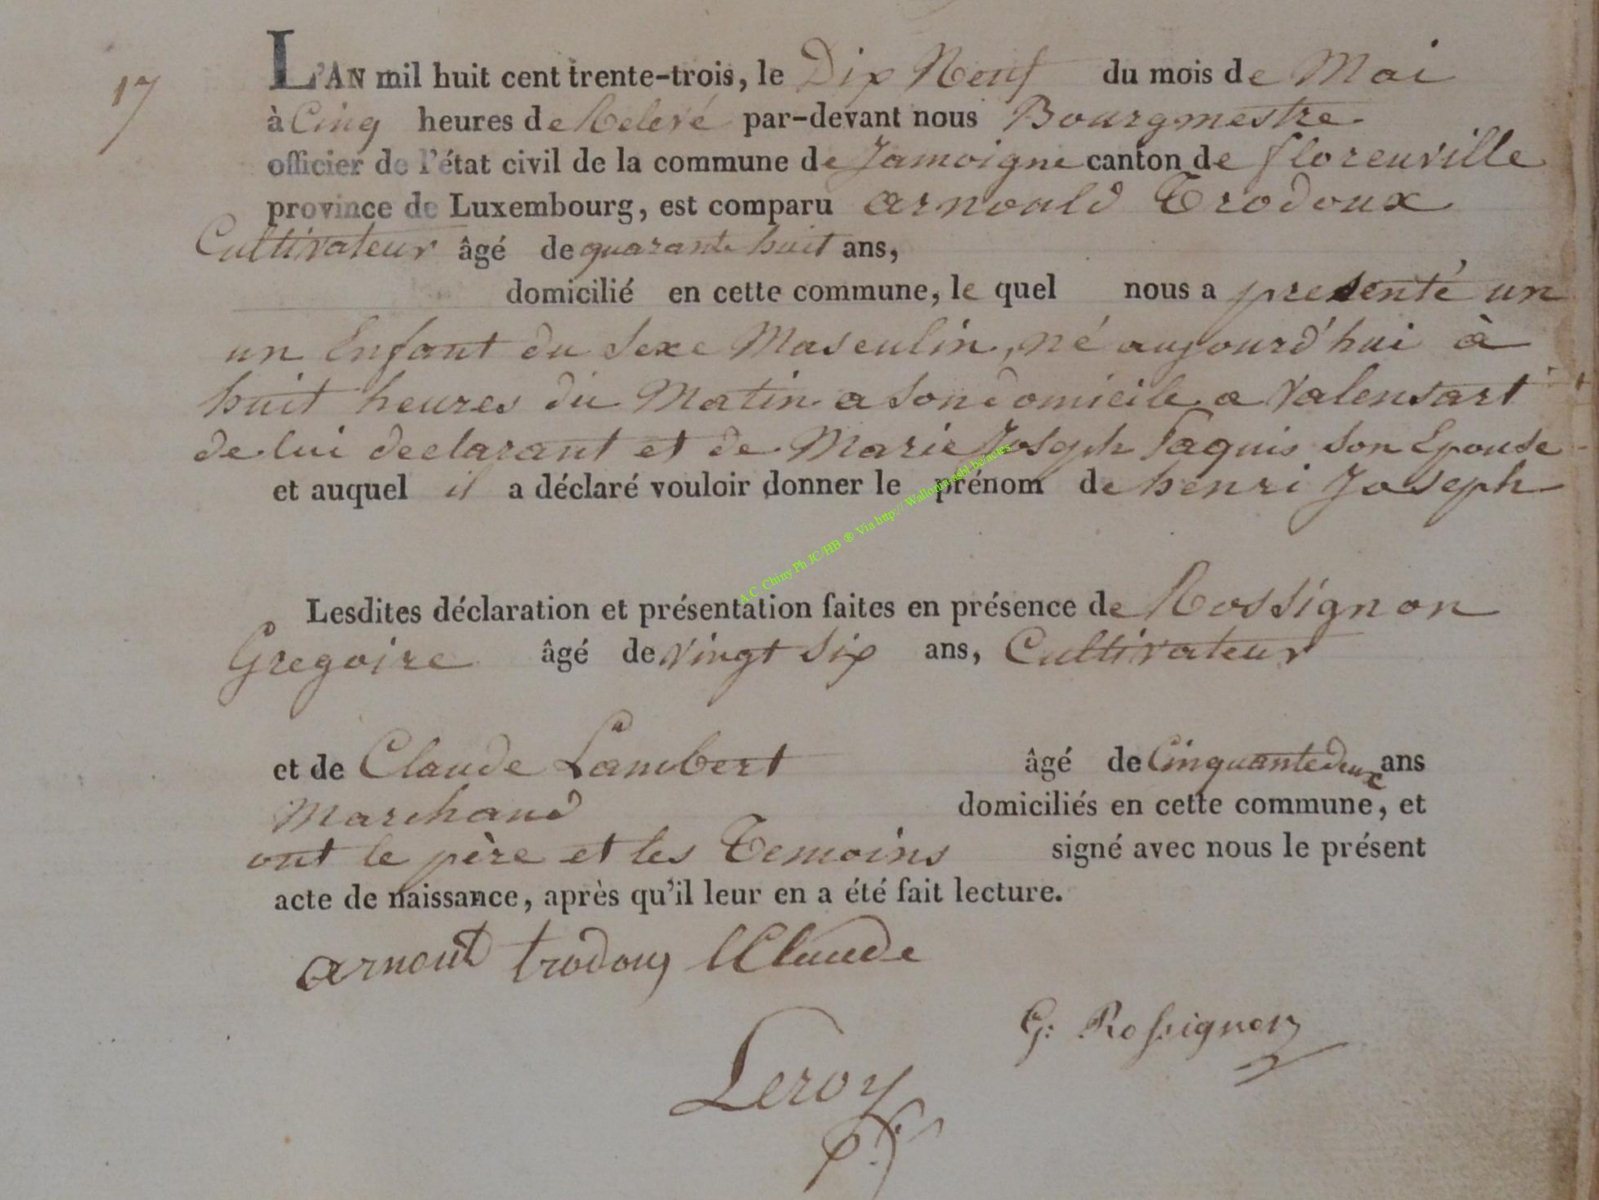 17
L'AN mil huit cent trente-trois, le Dix Neuf du mois de Mai
à Cinq heures de Relevé par-devant nous Bourgmestre
officier de l'état civil de la commune de Jamoigne canton de florenville
province de Luxembourg, est comparu arnould Trodoux
Cultivateur âgé de quarante huit ans,
domicilié en cette commune, le quel nous a presenté un
un Enfant du Sexe Masculin, né aujourd'hui à
huit heures du Matin a son domicile a Valensart
de lui declarant et de Marie Joseph Jaquis son Epouse
et auquel il a déclaré vouloir donner le prénom de henri Joseph
A.C Chiny Ph JC HB ® Via http://
Lesdites déclaration et présentation faites en présence de Rossignon
Gregoire âgé de vingt six ans, Cultivateur
et de Claude Lambert âgé de Cinquante deux ans
Marchand domiciliés en cette commune, et
ont le père et les Temoins signé avec nous le présent
acte de naissance, après qu'il leur en a été fait lecture.
arnout trodoux LClaude
G: Rossignon
Leroy